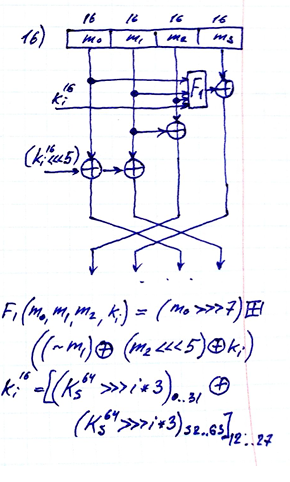 16 16 16 16
16) m₀ m₁ m₂ m₃
F₁ ⊕
kᵢ¹⁶
⊕
(kᵢ¹⁶<<<5) ⊕ ⊕
F₁(m₀, m₁, m₂, kᵢ) = (m₀ >>> 7) ⊞
((~m₁) ⊕ (m₂ <<< 5) ⊕ kᵢ)
kᵢ¹⁶ = [(Kₛ⁶⁴ >>> i * 3)₀..₃₁ ⊕
(Kₛ⁶⁴ >>> i * 3)₃₂..₆₃]₁₂..₂₇